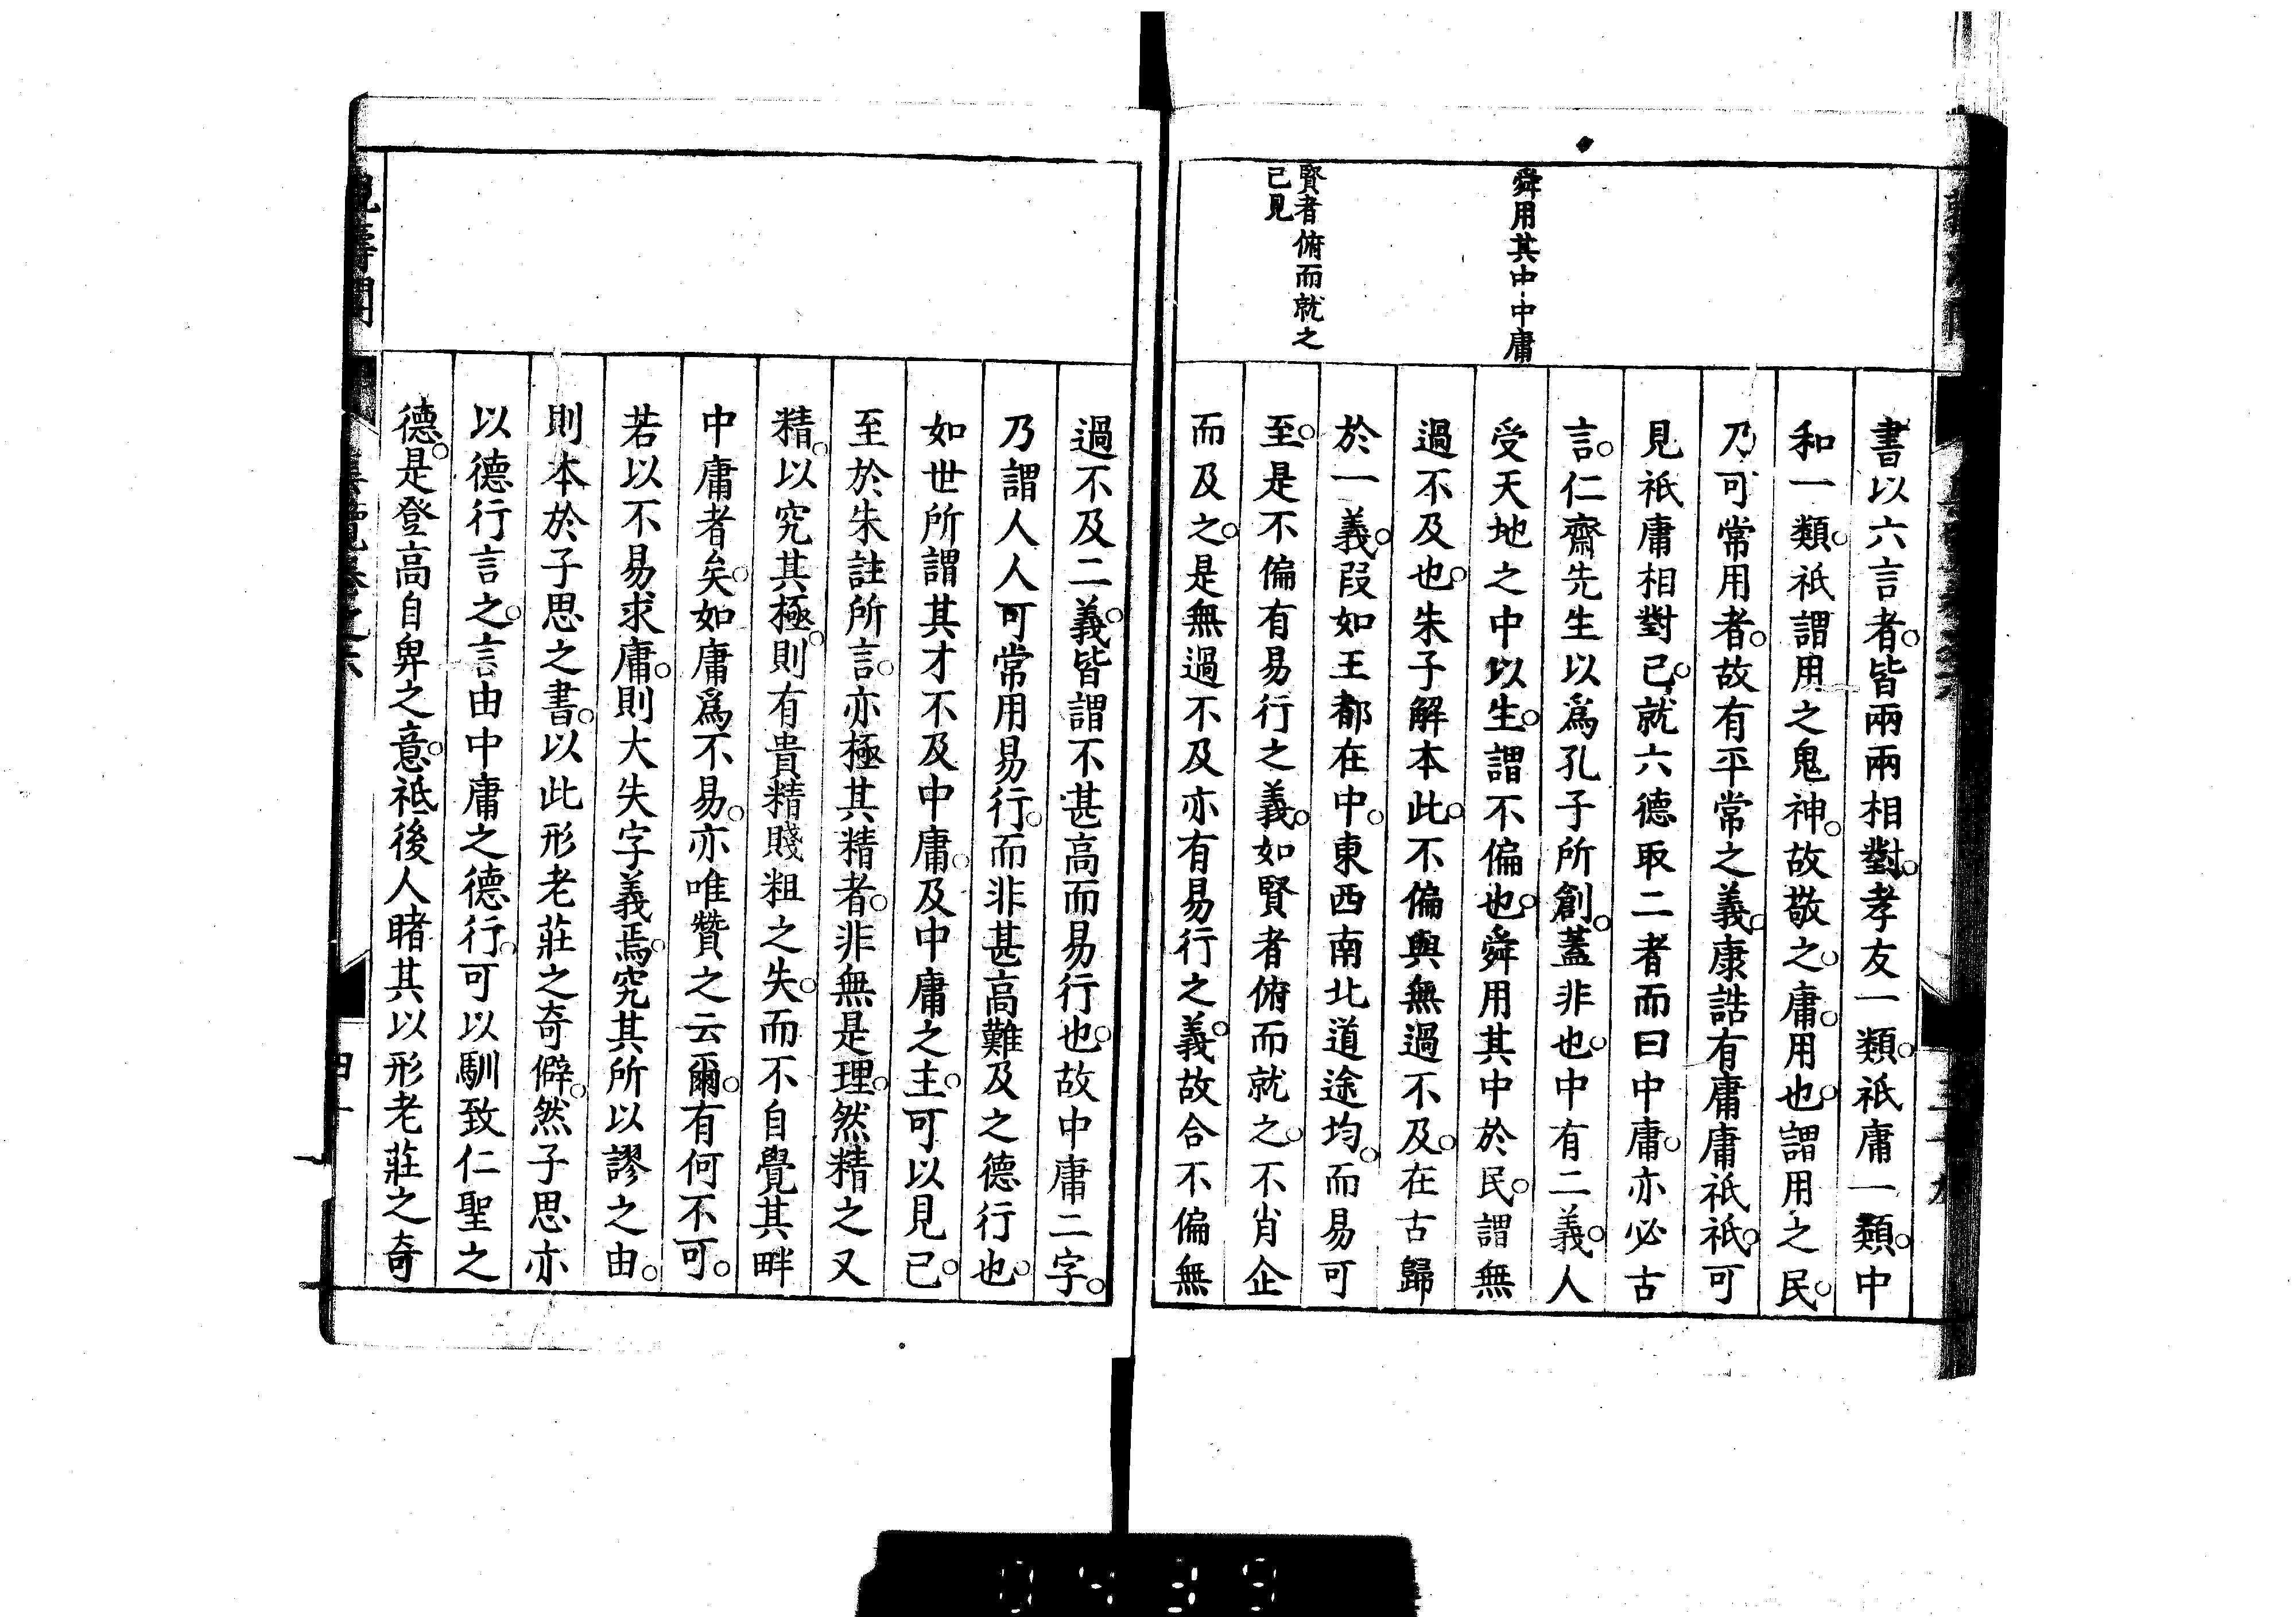 舜用其中中庸
賢者俯而就之
已見
書以六言者。皆兩兩相對。孝友一類。祇庸一類。中
和一類。祇謂用之鬼神。故敬之。庸。用也。謂用之民。
乃可常用者。故有平常之義。康誥有庸庸祇祇。可
見祇庸相對已。就六德取二者而曰中庸。亦必古
言。仁齋先生以爲孔子所創。蓋非也。中有二義。人
受天地之中以生。謂不偏也。舜用其中於民。謂無
過不及也。朱子解本此。不偏與無過不及。在古歸
於一義。叚如王都在中。東西南北道途均。而易可
至。是不偏有易行之義。如賢者俯而就之。不肖企
而及之。是無過不及亦有易行之義。故合不偏無
過不及二義。皆謂不甚高而易行也。故中庸二字。
乃謂人人可常用易行。而非甚高難及之德行也。
如世所謂其才不及中庸。及中庸之主。可以見已。
至於朱註所言。亦極其精者。非無是理。然精之又
精。以究其極。則有貴精賤粗之失。而不自覺其畔
中庸者矣。如庸爲不易。亦唯贊之云爾。有何不可。
若以不易求庸。則大失字義焉。究其所以謬之由。
則本於子思之書。以此形老莊之奇僻。然子思亦
以德行言之。言由中庸之德行。可以馴致仁聖之
德。是登高自卑之意。祇後人睹其以形老莊之奇